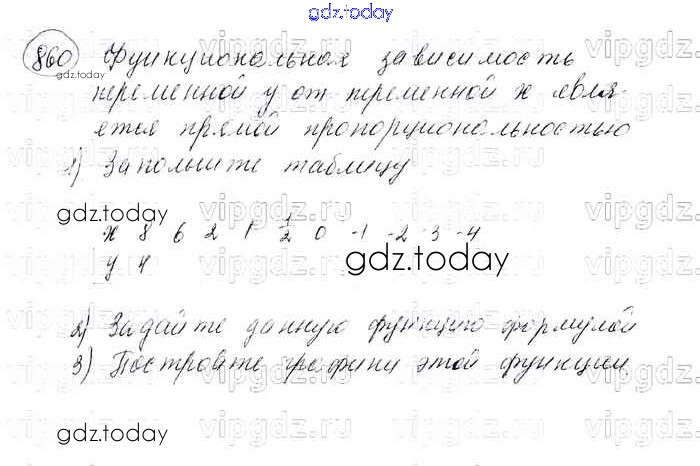 gdz.today
860 Функциональная зависимость
gdz.today
переменной y от переменной x явля-
ется прямой пропорциональностью
1) Заполните таблицу
gdz.today
x 8 6 2 1 1/2 0 -1 -2 -3 -4
y 4
gdz.today
2) Задайте данную функцию формулой
3) Постройте графики этой функции
gdz.today